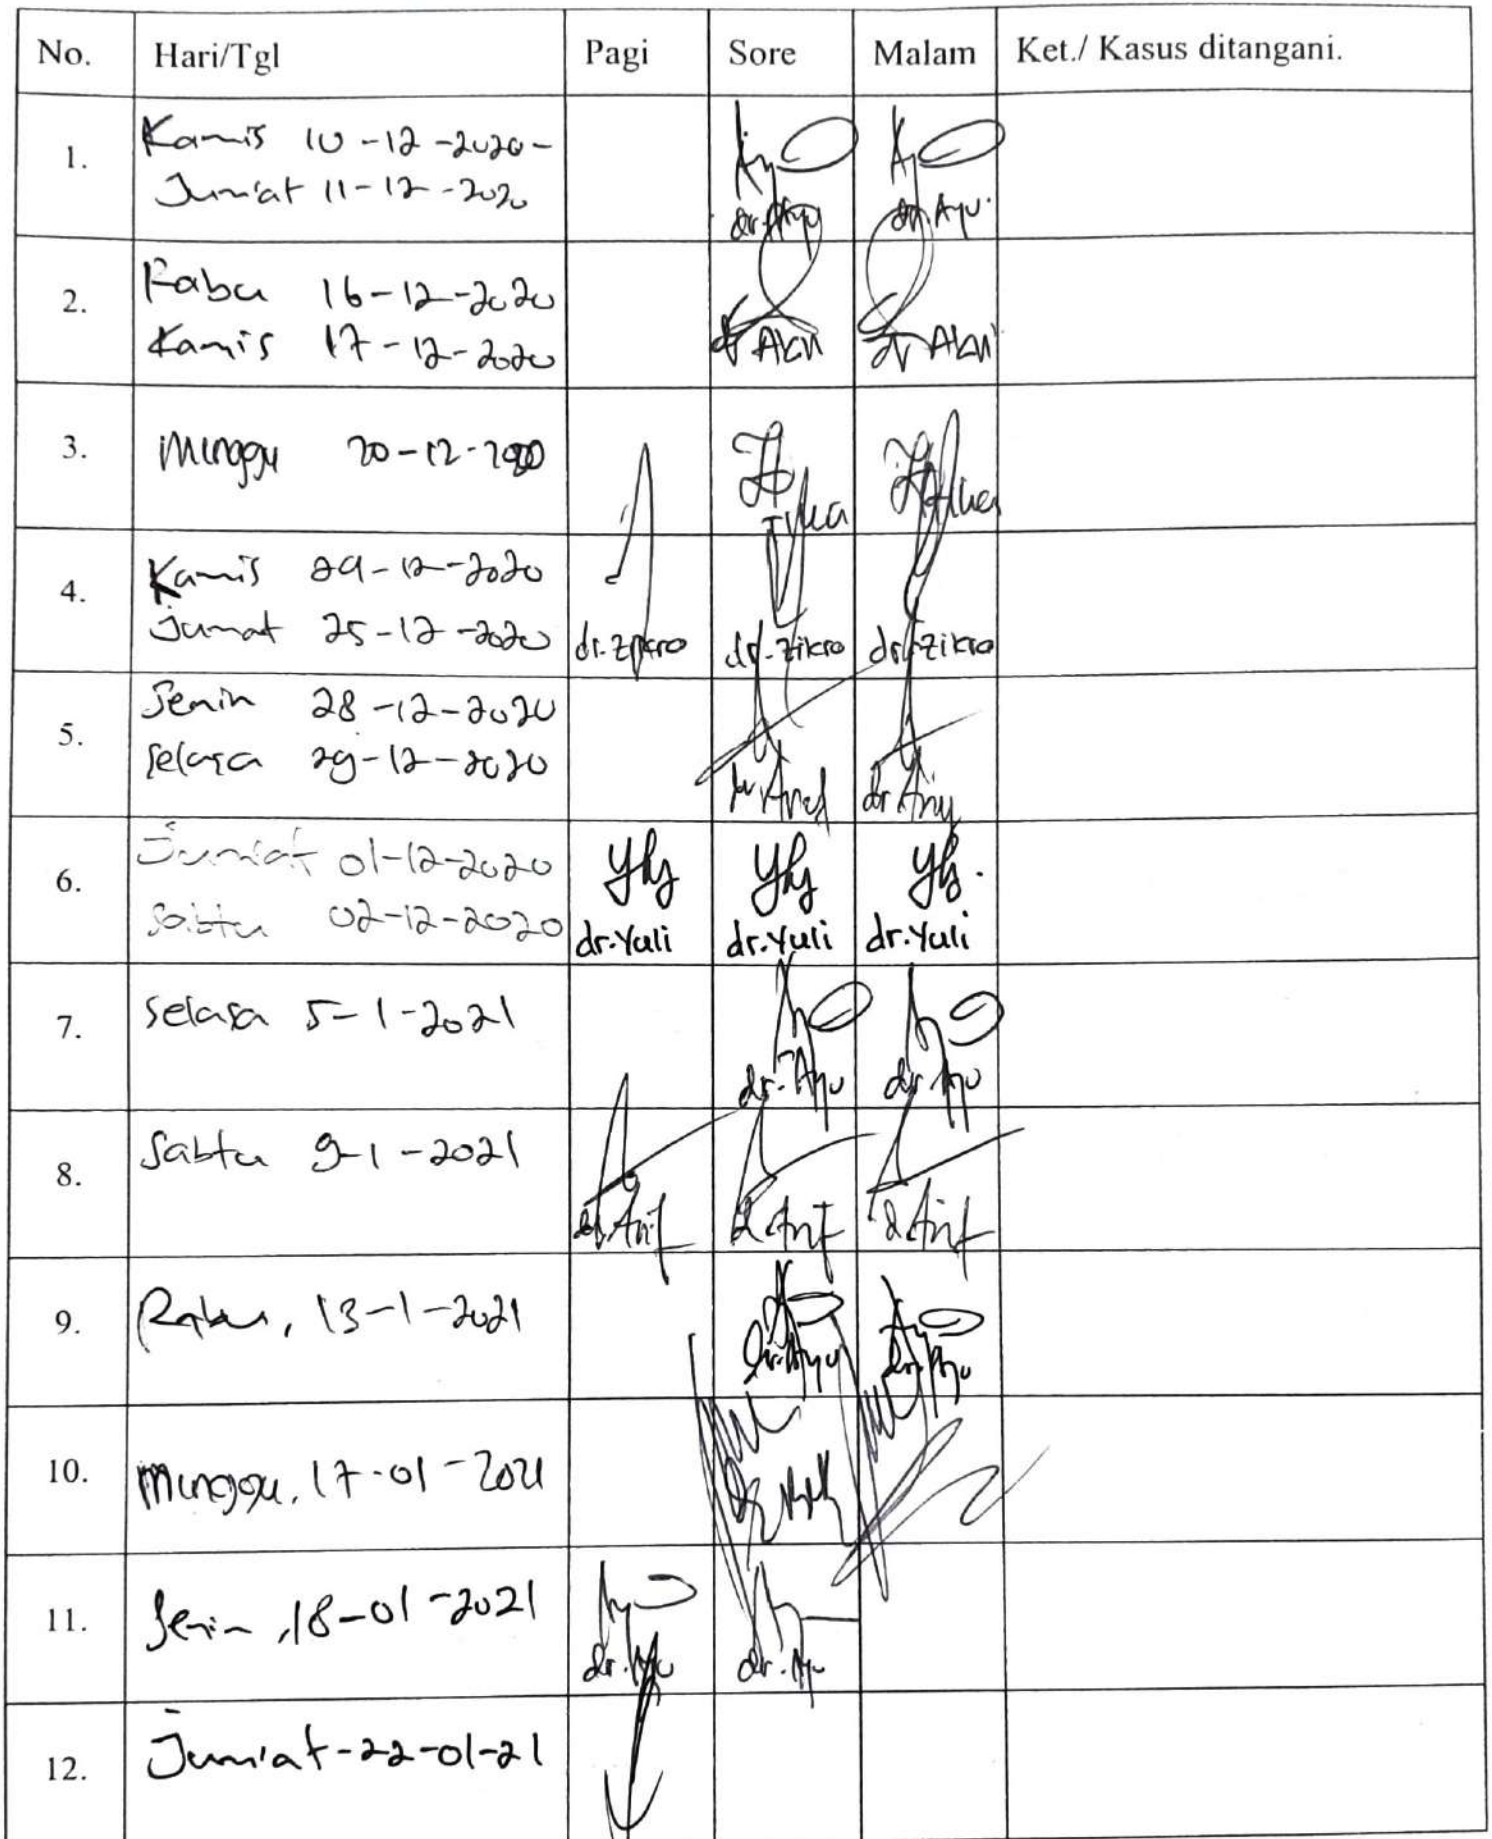 No. Hari/Tgl Pagi Sore Malam Ket./ Kasus ditangani.
1. Kamis 10-12-2020-
Jum'at 11-12-2020
dr. Ayu dr. Ayu
2. Rabu 16-12-2020
Kamis 17-12-2020
dr
3. Minggu 20-12-2020
4. Kamis 24-12-2020
Jumat 25-12-2020
dr. Zikro dr. Zikro dr. Zikro
5. Senin 28-12-2020
Selasa 29-12-2020
dr
6. Jum'at 01-12-2020
Sabtu 02-12-2020
dr. Yuli dr. Yuli dr. Yuli
7. Selasa 5-1-2021
dr. Ayu dr. Ayu
8. Sabtu 9-1-2021
dr Arif dr Arif dr Arif
9. Rabu, 13-1-2021
dr. Ayu dr. Ayu
10. Minggu, 17-01-2021
11. Senin, 18-01-2021
dr. Ayu dr. Ayu
12. Jum'at-22-01-21